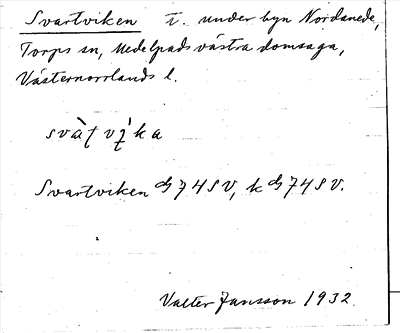 Svartviken t. under byn Nordanede,
Torps sn, Medelpads västra domsaga,
Västernorrlands l.
svàṭ vị̀ka
Svartviken GK 74 SV, k GK 74 SV.
Valter Jansson 1932